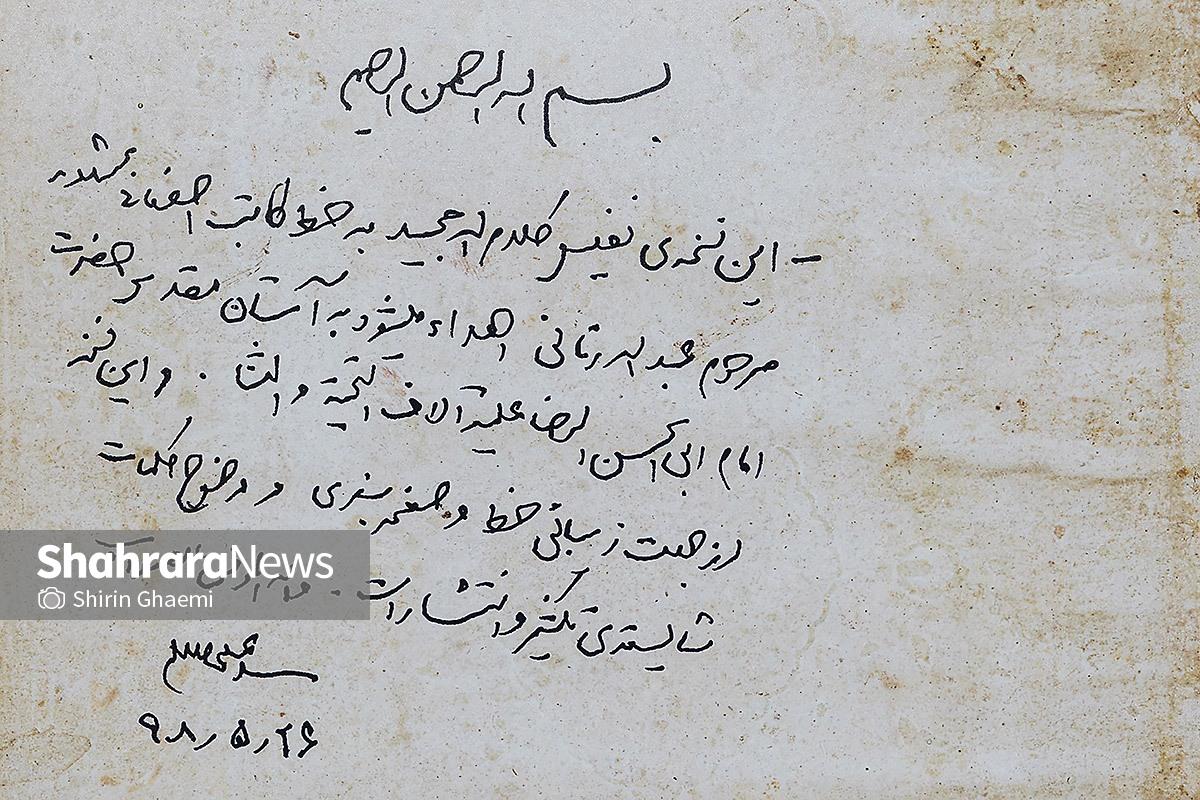 بسم الله الرحمن الرحیم
- این نسخه‌ی نفیس کلام الله مجید به خط کاتب اصفهانی
مرحوم عبدالله اهداء میشود به آستان مقدس حضرت
امام ابی الحسن الرضا علیه آلاف التحیة والثنا . و این نسخه
از جهت زیبائی خط و صفحه بندی و وضوح کلمات
شایسته‌ی تکثیر و انتشار است .
۹۸٫۵٫۲۶
ShahraraNews
Shirin Ghaemi